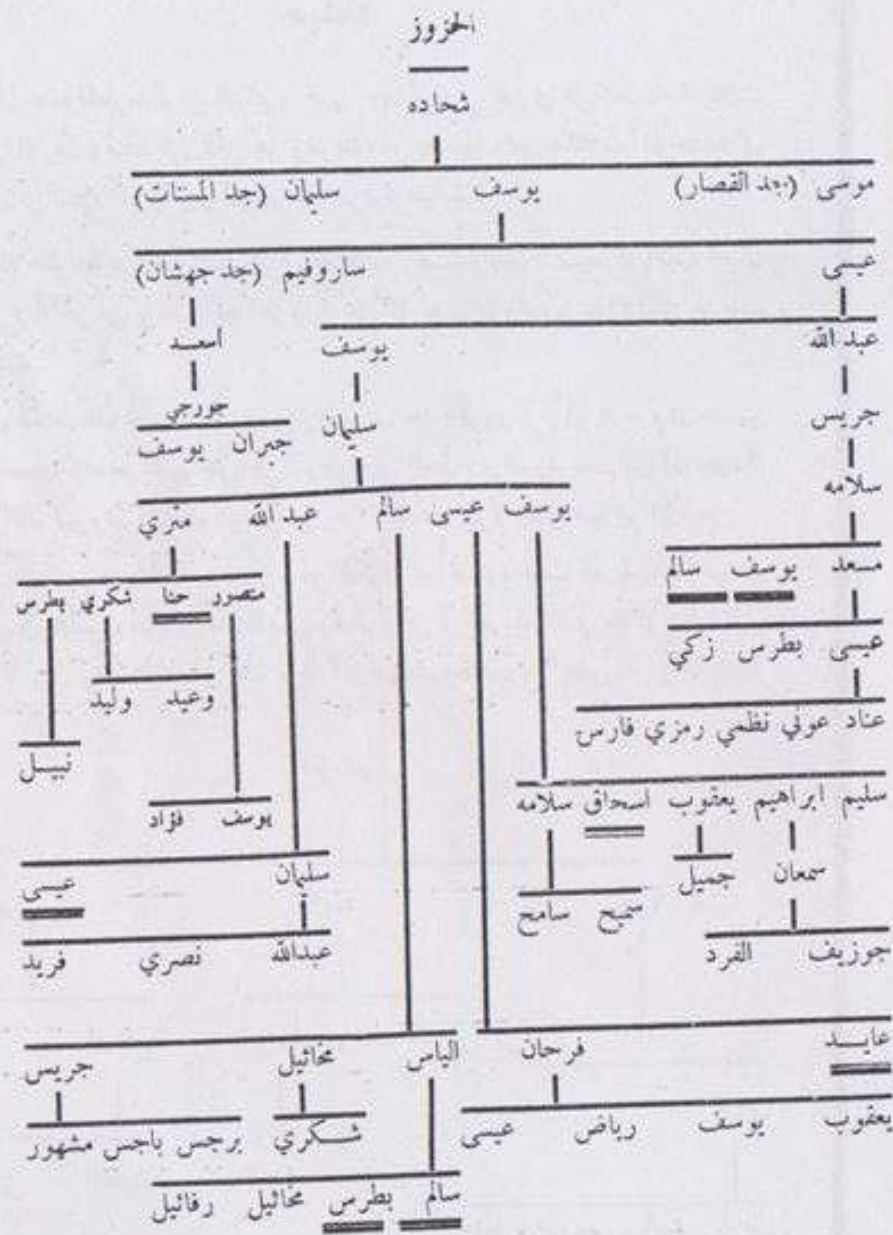 الحزوز
شحاده
موسى (جد القصار) يوسف سليمان (جد المستات)
عيسى ساروفيم (جد جهشان)
عبد الله يوسف اسعد
جريس سليمان جورجي
جبران يوسف
سلامه
يوسف عيسى سالم عبد الله متري
مسعد يوسف سالم
منصور حنا شكري بطرس
عيسى بطرس زكي
وعيد وليد
عناد عوني نظمي رمزي فارس
نبيل
سليم ابراهيم يعقوب اسحاق سلامه
يوسف فؤاد
سمعان جميل سميح سامح
سليمان عيسى
جوزيف الفرد
عبدالله نصري فريد
عايد فرحان الياس مخائيل جريس
يعقوب يوسف رياض عيسى شكري برجس باجس مشهور
سالم بطرس مخائيل رفائيل